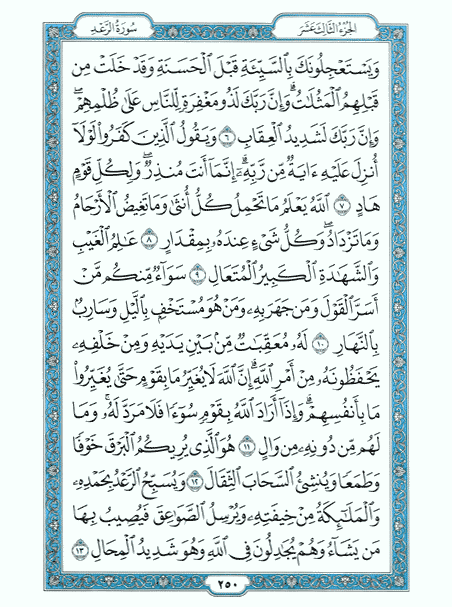 سُورَةُ الرَّعْدِ
الجُزْءُ الثَّالِثَ عَشَرَ
وَيَسْتَعْجِلُونَكَ بِٱلسَّيِّئَةِ قَبْلَ ٱلْحَسَنَةِ وَقَدْ خَلَتْ مِن
قَبْلِهِمُ ٱلْمَثُلَٰتُۗ وَإِنَّ رَبَّكَ لَذُو مَغْفِرَةٍ لِّلنَّاسِ عَلَىٰ ظُلْمِهِمْۖ
وَإِنَّ رَبَّكَ لَشَدِيدُ ٱلْعِقَابِ ٦ وَيَقُولُ ٱلَّذِينَ كَفَرُوا۟ لَوْلَآ
أُنزِلَ عَلَيْهِ ءَايَةٌ مِّن رَّبِّهِۦٓۗ إِنَّمَآ أَنتَ مُنذِرٌۖ وَلِكُلِّ قَوْمٍ
هَادٍ ٧ ٱللَّهُ يَعْلَمُ مَا تَحْمِلُ كُلُّ أُنثَىٰ وَمَا تَغِيضُ ٱلْأَرْحَامُ
وَمَا تَزْدَادُۖ وَكُلُّ شَىْءٍ عِندَهُۥ بِمِقْدَارٍ ٨ عَٰلِمُ ٱلْغَيْبِ
وَٱلشَّهَٰدَةِ ٱلْكَبِيرُ ٱلْمُتَعَالِ ٩ سَوَآءٌ مِّنكُم مَّنْ
أَسَرَّ ٱلْقَوْلَ وَمَن جَهَرَ بِهِۦ وَمَنْ هُوَ مُسْتَخْفٍۭ بِٱلَّيْلِ وَسَارِبٌۢ
بِٱلنَّهَارِ ١٠ لَهُۥ مُعَقِّبَٰتٌ مِّنۢ بَيْنِ يَدَيْهِ وَمِنْ خَلْفِهِۦ
يَحْفَظُونَهُۥ مِنْ أَمْرِ ٱللَّهِۗ إِنَّ ٱللَّهَ لَا يُغَيِّرُ مَا بِقَوْمٍ حَتَّىٰ يُغَيِّرُوا۟
مَا بِأَنفُسِهِمْۗ وَإِذَآ أَرَادَ ٱللَّهُ بِقَوْمٍ سُوٓءًا فَلَا مَرَدَّ لَهُۥۚ وَمَا
لَهُم مِّن دُونِهِۦ مِن وَالٍ ١١ هُوَ ٱلَّذِى يُرِيكُمُ ٱلْبَرْقَ خَوْفًا
وَطَمَعًا وَيُنشِئُ ٱلسَّحَابَ ٱلثِّقَالَ ١٢ وَيُسَبِّحُ ٱلرَّعْدُ بِحَمْدِهِۦ
وَٱلْمَلَٰٓئِكَةُ مِنْ خِيفَتِهِۦ وَيُرْسِلُ ٱلصَّوَٰعِقَ فَيُصِيبُ بِهَا
مَن يَشَآءُ وَهُمْ يُجَٰدِلُونَ فِى ٱللَّهِ وَهُوَ شَدِيدُ ٱلْمِحَالِ ١٣
٢٥٠